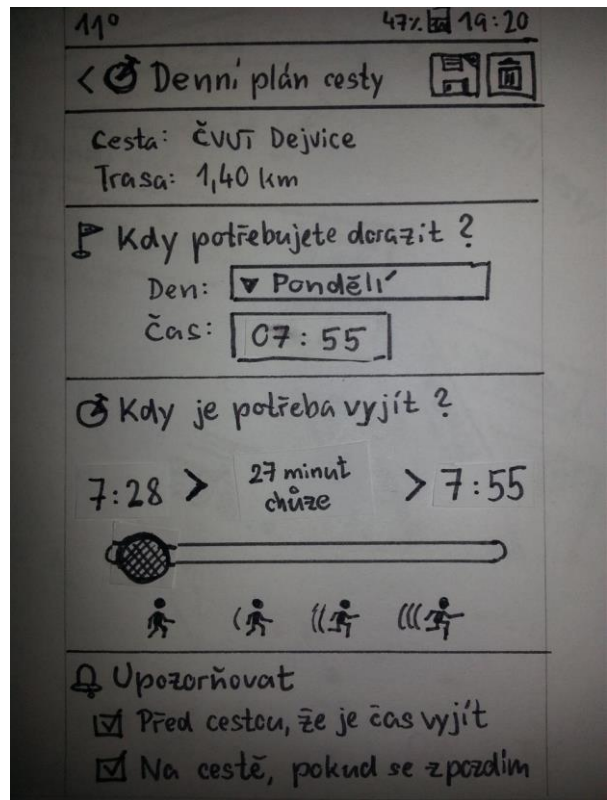 11° 47% 19:20
< Denní plán cesty
Cesta: ČVUT Dejvice
Trasa: 1,40 km
Kdy potřebujete dorazit?
Den: ▼ Pondělí
Čas: 07:55
Kdy je potřeba vyjít?
7:28 > 27 minut chůze > 7:55
Upozorňovat
☑ Před cestou, že je čas vyjít
☑ Na cestě, pokud se zpozdím